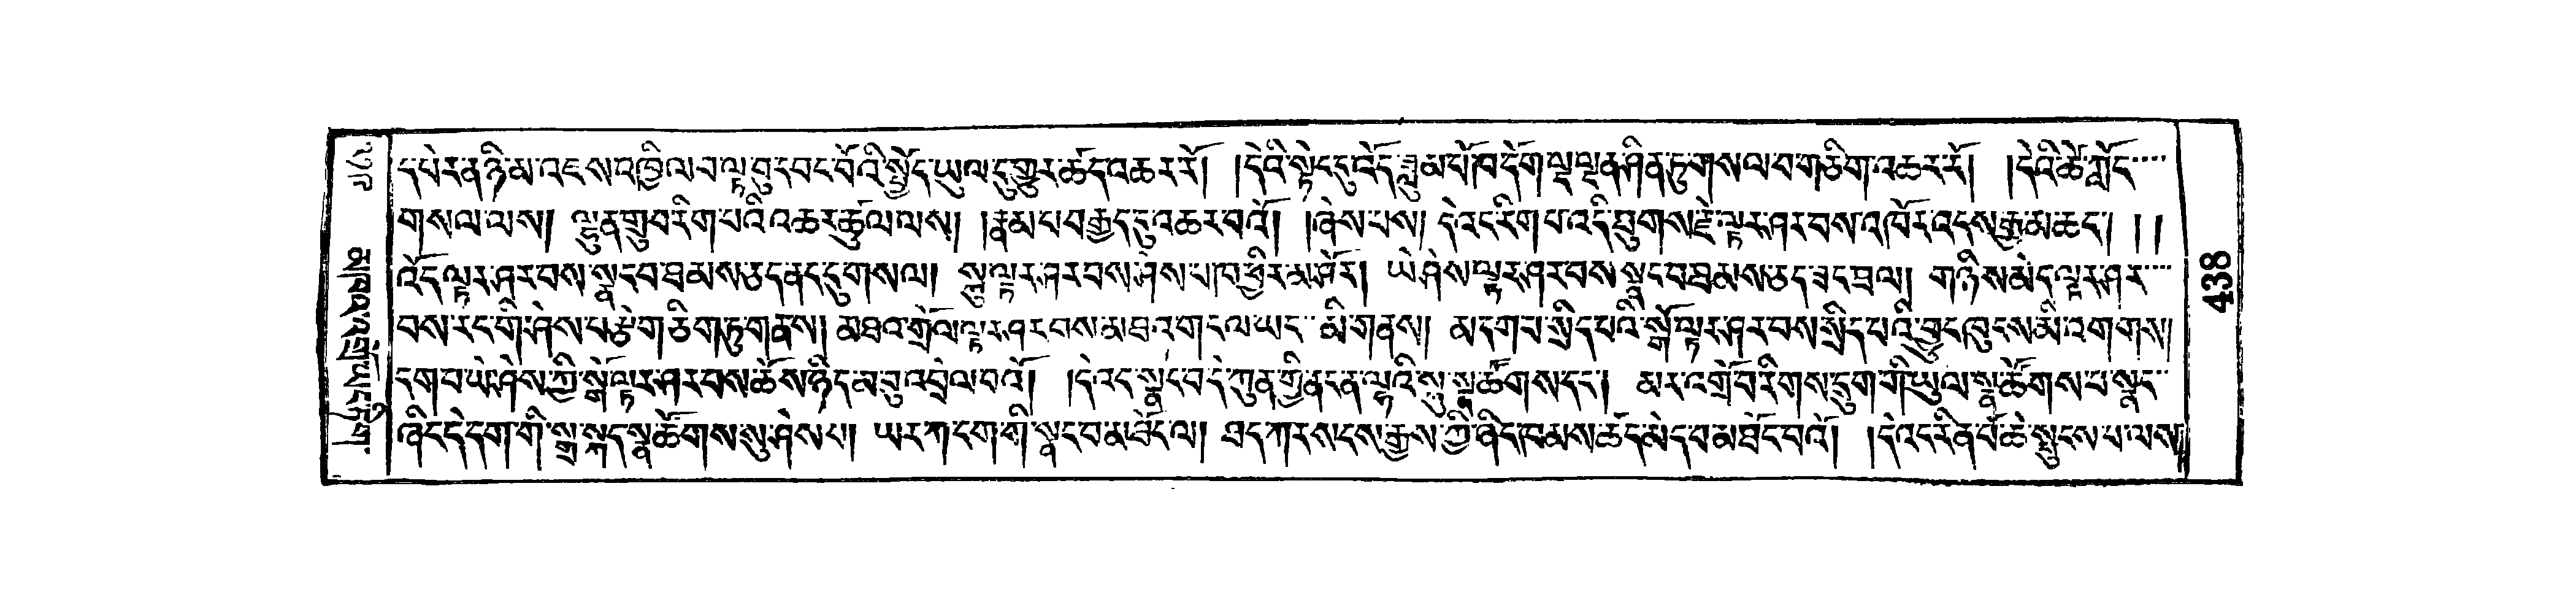 དཔེར་ན་ཉི་མ་འཇས་འཁྱིལ་བ་ལྟ་བུ་དབང་པོའི་སྤྱོད་ཡུལ་དུ་གྱུར་ཚད་འཆར་རོ། །དེའི་སྟེང་དུ་འོད་ཟླུམ་པོ་ཁ་དོག་ལྔ་ལྡན་ཤིན་ཏུ་གསལ་བ་གཅིག་འཆར་རོ། །དེའི་ཚེ་ཀློང་
གསལ་ལས། ལྷུན་གྲུབ་རིག་པའི་འཆར་ཚུལ་ལས། །རྣམ་པ་བརྒྱད་དུ་འཆར་བའོ། །ཞེས་པས། དེ་འང་རིག་པ་འདི་ཐུགས་རྗེ་ལྟར་ཤར་བས་འཁོར་འདས་རྒྱ་མ་ཆད། ། །
འོད་ལྟར་ཤར་བས་སྣང་བ་ཐམས་ཅད་ནང་དུ་གསལ། སྐུ་ལྟར་ཤར་བས་ཤེས་པ་ཁ་ཕྱིར་མ་ཤོར། ཡེ་ཤེས་ལྟར་ཤར་བས་སྣང་བ་ཐམས་ཅད་ཟང་ཐལ། གཉིས་མེད་ལྟར་ཤར་
བས་རང་གི་ཤེས་པ་རྩེ་གཅིག་ཏུ་གནས། མཐའ་གྲོལ་ལྟར་ཤར་བས་མཐའ་གང་ལ་ཡང་མི་གནས། མ་དག་པ་སྲིད་པའི་སྒོ་ལྟར་ཤར་བས་སྲིད་པའི་བྱུང་ཁུངས་མི་འགགས།
དག་པ་ཡེ་ཤེས་ཀྱི་སྒོ་ལྟར་ཤར་བས་ཆོས་ཉིད་མ་བུ་འབྲེལ་བའོ། །དེ་འང་སྣང་བ་དེ་ཀུན་གྱི་ནང་ན་ལྷའི་སྐུ་སྣ་ཚོགས་དང་། མར་འགྲོ་བ་རིགས་དྲུག་གི་ཡུལ་སྣ་ཚོགས་པ་སྣང་
ཞིང་དེ་དག་གི་སྒྲ་སྐད་སྣ་ཚོགས་སུ་ཤེས་པ། ཡར་ཀ་དག་གི་སྣང་བ་མཐོང་ལ། ཐད་ཀར་སངས་རྒྱས་ཀྱི་ཞིང་ཁམས་ཚད་མེད་པ་མཐོང་བའོ། །དེ་འང་རིན་པོ་ཆེ་སྤུངས་པ་ལས།